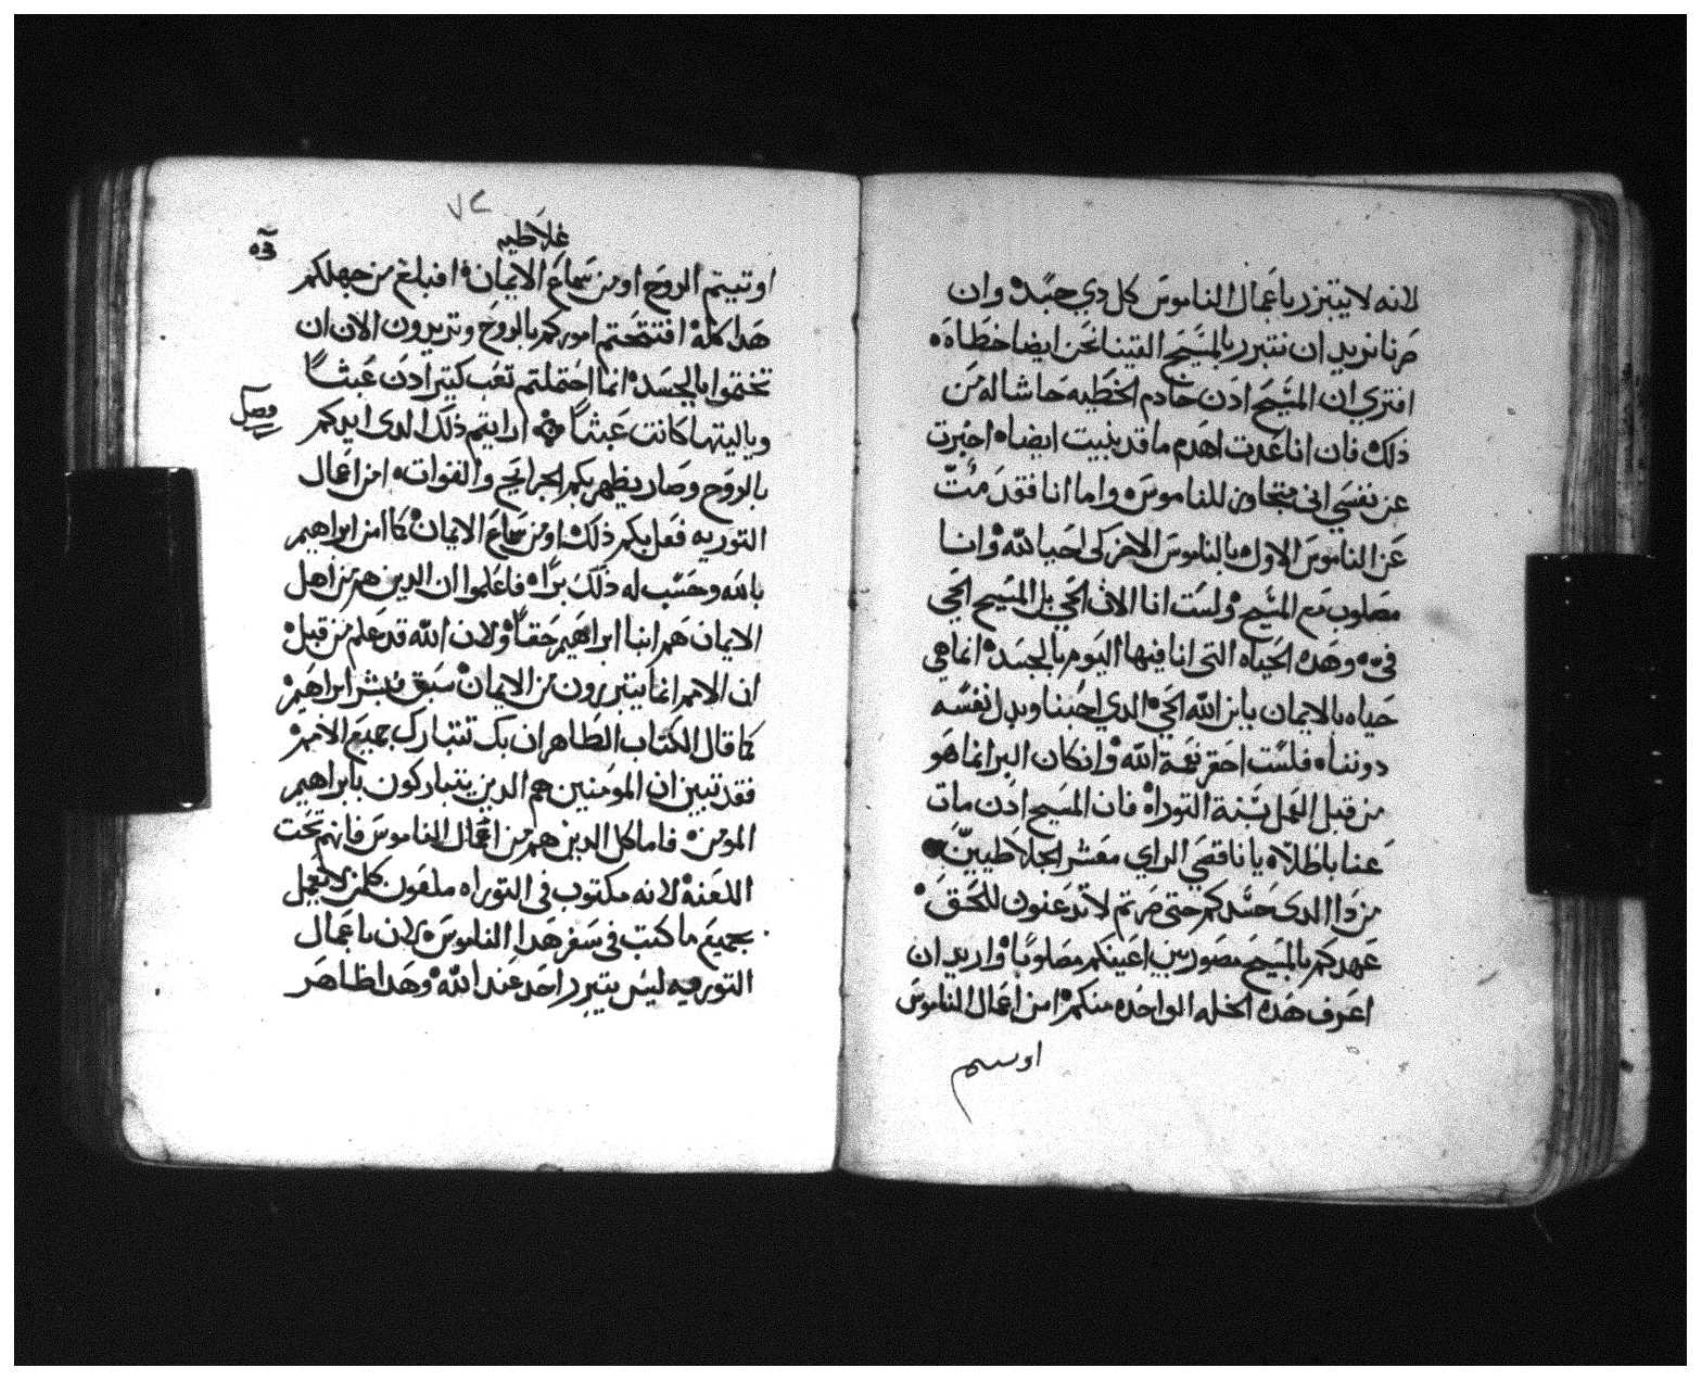 لانه لا يتبرر باعمال الناموس كل دي جسد وان
صرنا نريد ان نتبرر بالمسيح الفينا نحن ايضا خطاه
افتري ان المسيح ادن خادم الخطيه حاشا له من
ذلك فان انا عدت اهدم ما قد بنيت ايضا اخبرت
عن نفسي اني متجاوز للناموس واما انا فقد مت
عن الناموس الاول بالناموس الاخر كي احيا لله وانا
مصلوب مع المسيح ولست انا الان الحي بل المسيح الحي
في وهده الحياه التي انا فيها اليوم بالجسد انما هي
حياه بالايمان بابن الله الحي الدي احبنا وبدل نفسه
دوننا فلست احقر نعمة الله وان كان البر انما هو
من قبل العمل بسنة التوراه فان المسيح ادن مات
عنا باطلا يا ناقصي الراي معشر الجلاطيين
من دا الدى حسدكم حتى صرتم لا تدعنون للحق
عهدكم بالمسيح مصور بين اعينكم مصلوبا واريد ان
اعرف هده الخله الواحده منكم امن اعمال الناموس
غلاطيه
اوتيتم الروح او من سماع الايمان افبلغ من جهلكم
هدا كله افتتحتم اموركم بالروح وتريدون الان ان
تختموا بالجسد انما احتملتم تعب كتير ادن عبثا
وياليتها كانت عبثا ارايتم ذلك الدى ايدكم
فصل
بالروح وصار يظهر بكم الجرايح والقوات امن اعمال
التوريه فعل بكم ذلك او من سماع الايمان كما امن ابراهيم
بالله وحسب له ذلك برا فاعلموا ان الدين هم من اهل
الايمان هم ابنا ابراهيم حقا ولان الله قد علم من قبل
ان الامم انما يتبررون من الايمان سبق فبشر ابراهيم
كما قال الكتاب الطاهر ان بك تتبارك جميع الامم
فقد تبين ان المومنين هم الدين يتباركون بابراهيم
المومن فاما كل الدين هم من اعمال الناموس فانهم تحت
اللعنة لانه مكتوب في التوراه ملعون كلمن لا يعمل
بجميع ما كتب في سفر هدا الناموس لان باعمال
التوريه ليس يتبرر احد عند الله وهدا ظاهر